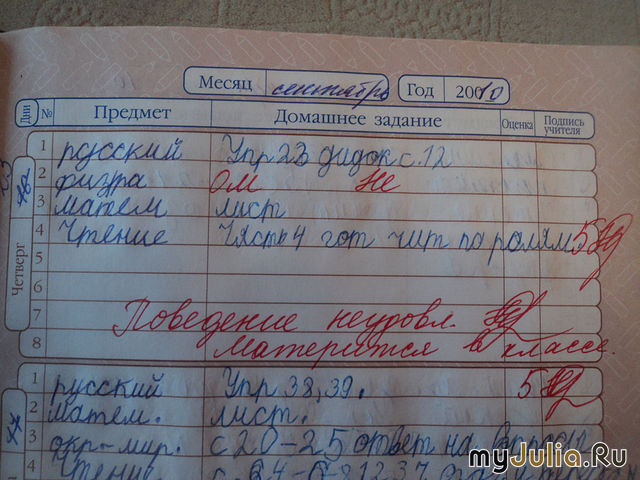 Месяц сентябрь Год 2010
Дни № Предмет Домашнее задание Оценка Подпись учителя
Четверг
1 русский Упр 23 дидок с. 12
2 физра ом не
3 матем лист
4 Чтение Часть 4 гот чит по ролям 5
5
6
7 Поведение неудовл.
8 Матерится в классе.
1 русский Упр 38, 39. 5
2 матем. лист.
3 окр-мир. с 20-25 ответ на
4 Чтение
myJulia.Ru